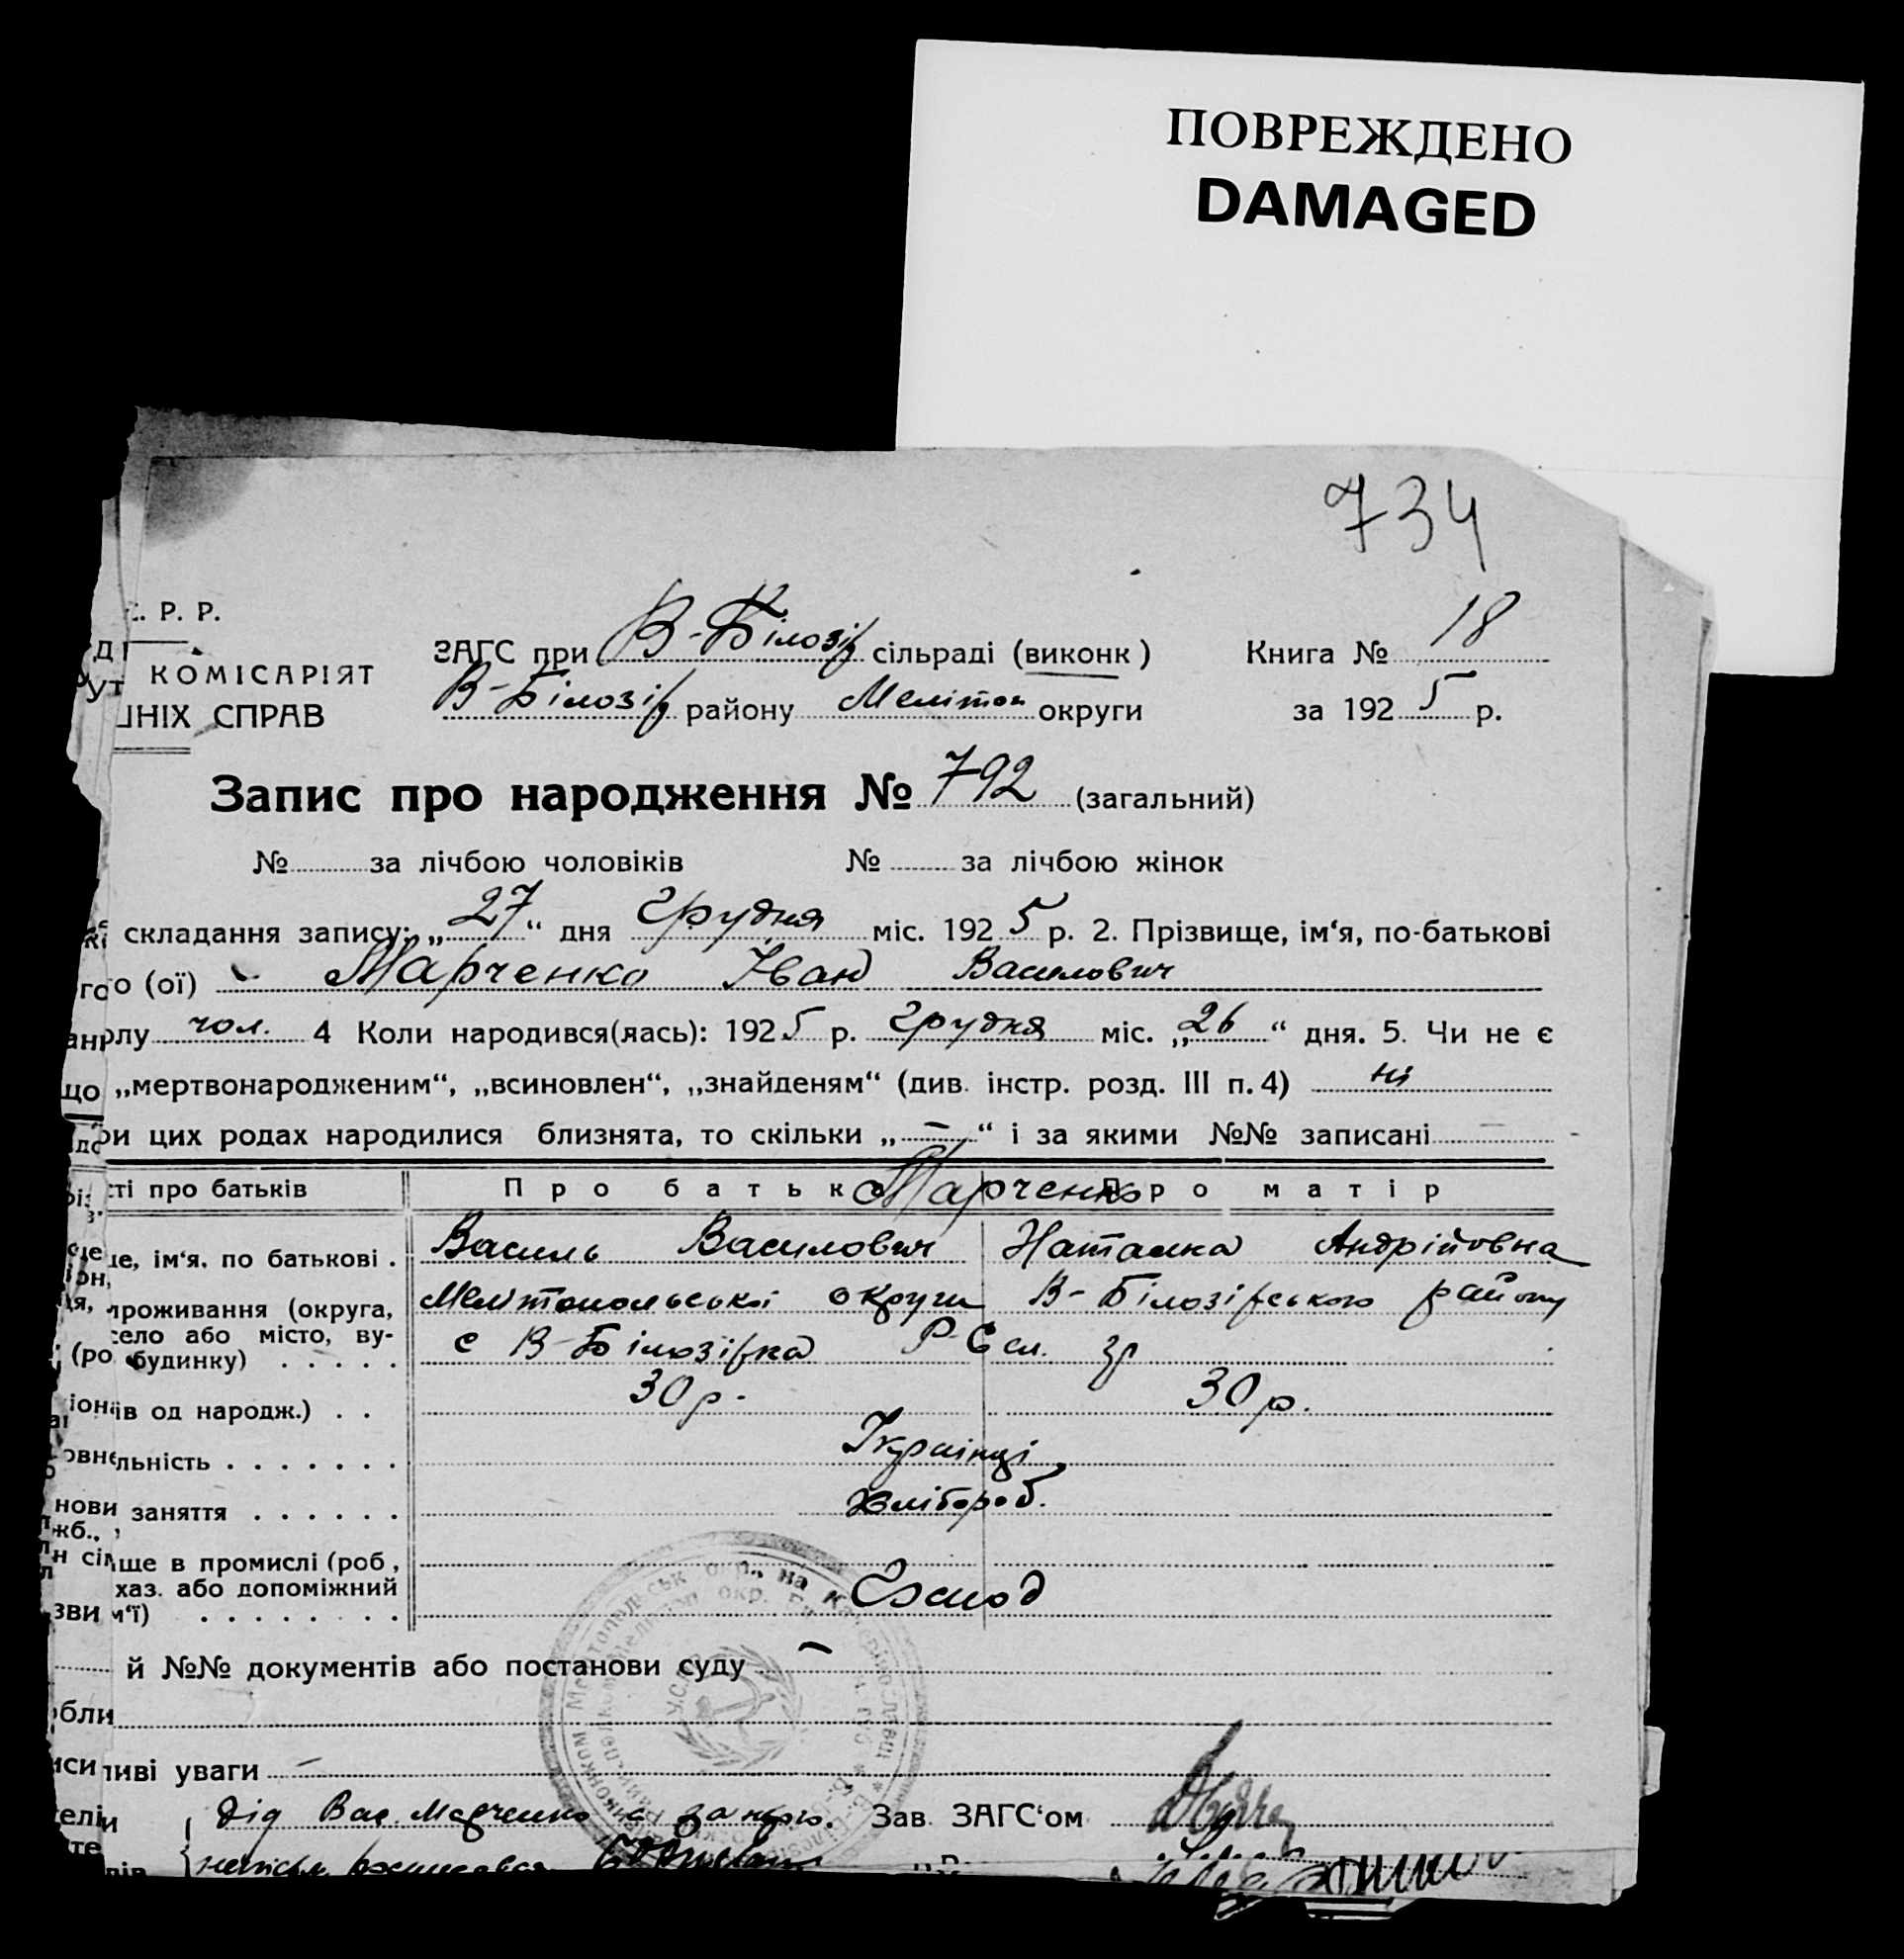 ПОВРЕЖДЕНО
DAMAGED
734
Р. Р.
КОМІСАРІЯТ
СПРАВ
ЗАГС при В-Білозір сільраді (виконк)
Книга № 18
В-Білозір району Мелітоп округи
за 1925 р.
Запис про народження № 792 (загальний)
№ за лічбою чоловіків № за лічбою жінок
складання запису: „27“ дня Грудня міс. 1925 р. 2. Прізвище, ім‘я, по-батькові
(ої) Марченко Іван Василович
чол. 4 Коли народився(лась): 1925 р. Грудня міс. „26“ дня. 5. Чи не є
„мертвонародженим“, „всиновлен“, „знайденям“ (див. інстр. розд. III п. 4) ні
цих родах народилися близнята, то скільки „—“ і за якими №№ записані
про батьків Про батька Марченко Про матір
ім‘я, по батькові . Василь Василович Наталка Андрійовна
проживання (округа, Мелітопольської округи В-Білозірського району
або місто, ву-
будинку) . . . . . с В-Білозірка
од народж.) . . 30 р. 30 р.
. . . . . . . Українці
заняття . . . . . . Хлібороб.
в промислі (роб,
або допоміжний
. . . . . . . .
й №№ документів або постанови суду —
уваги —
дід Вас. Марченко а за нього. Зав. ЗАГС‘ом